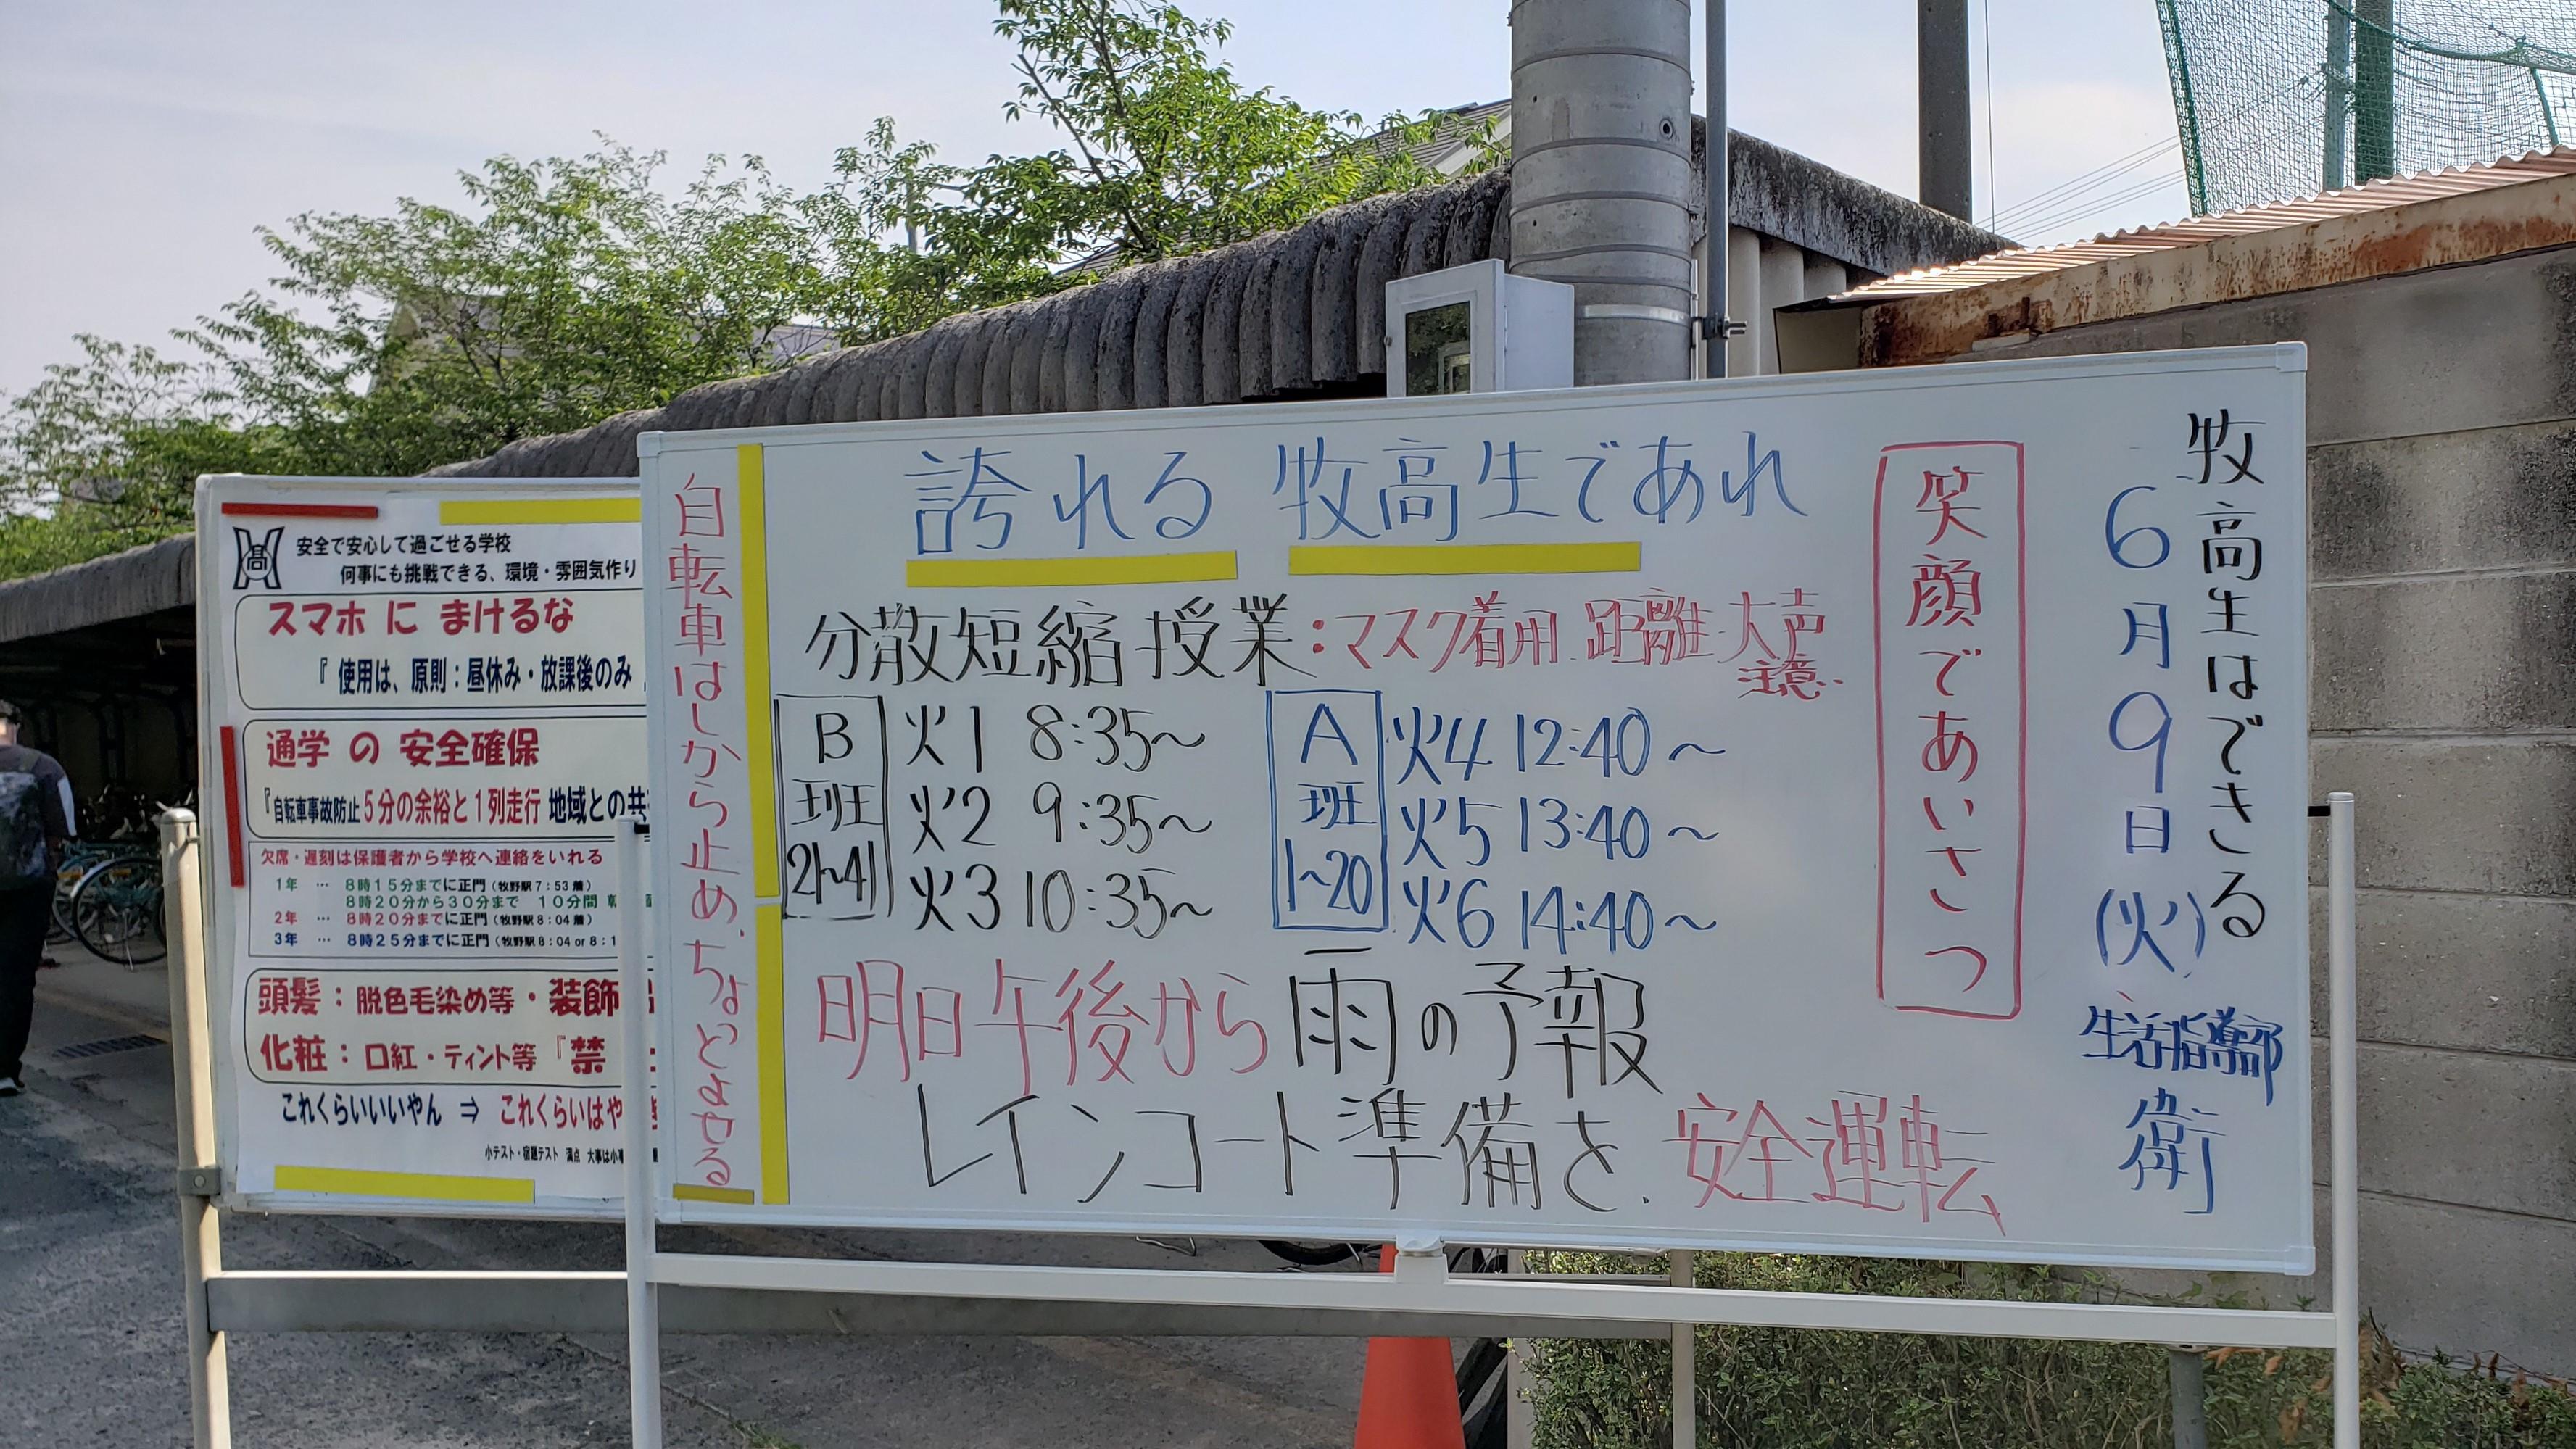 牧高生はできる
6月9日(火)
生活指導部
衛
笑顔であいさつ
誇れる 牧高生であれ
分散短縮授業:マスク着用 距離 大声
注意
B班 21~41
火1 8:35~
火2 9:35~
火3 10:35~
A班 1~20
火4 12:40~
火5 13:40~
火6 14:40~
明日午後から雨の予報
レインコート準備を.安全運転
自転車はしから止め、ちょっとよせる
安全で安心して過ごせる学校
何事にも挑戦できる、環境・雰囲気作り
スマホ に まけるな
『 使用は、原則:昼休み・放課後のみ
通学 の 安全確保
『自転車事故防止5分の余裕と1列走行 地域との共
欠席・遅刻は保護者から学校へ連絡をいれる
1年 … 8時15分までに正門(牧野駅7:53着)
8時20分から30分まで 10分間
2年 … 8時20分までに正門(牧野駅8:04着)
3年 … 8時25分までに正門(牧野駅8:04 or 8:1
頭髪:脱色毛染め等・装飾
化粧:口紅・ティント等『禁
これくらいいいやん ⇒ これくらいはや
小テスト・宿題テスト 満点 大事は小事
高